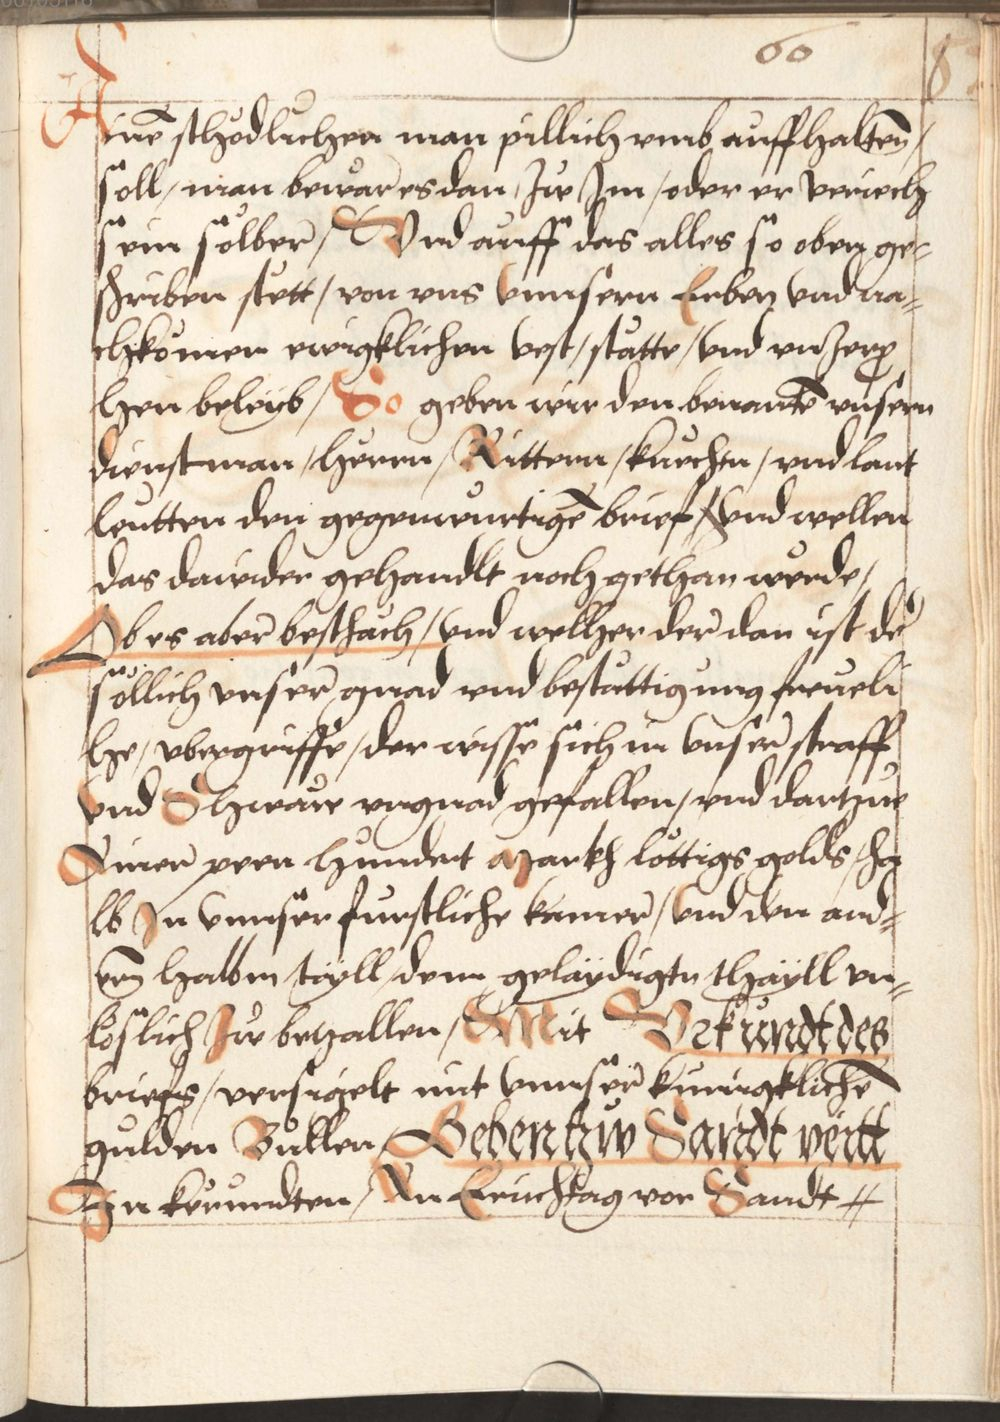 60
Ainē schödlichen man pillich vmb auffhaltēn /
soll / man bewär es dan / zw Im / oder er veriech
sein sölber / Und auff das alles so oben ge=
schriben stett / von vns vnnsern Erben vnd na=
chkomen ewigklichen vest / statte / vnd
hen beleyb / So geben wir den benantē vnsern
dienstman / herrn / Rittern / knechtn / vnd lant
leutten den gegenwurtigē brieff / vnd wellen
das dawider gehandlt noch gethan werde /
Ob es aber beschäch / vnd welher der dan ist de
söllich vnser gnad vnd bestättigung freueli
he / vbergriffe / der wisse sich in vnser straff
vnd Shwäre vngnad gefallen / vnd dartzue
Ainer peen hundert Markh löttigs golds / ha
lb In vnnser furstliche kamer / vnd den and=
ern halben tayll dem gelaydigtn thayll vn=
löslich zw betzallen / Mit Urkundt des
brieffs / versigelt mit vnnser kunigkliche
gulden Bullen / Geben tzw Sandt veitt
In kärnndten / An Erichtag vor Sandt